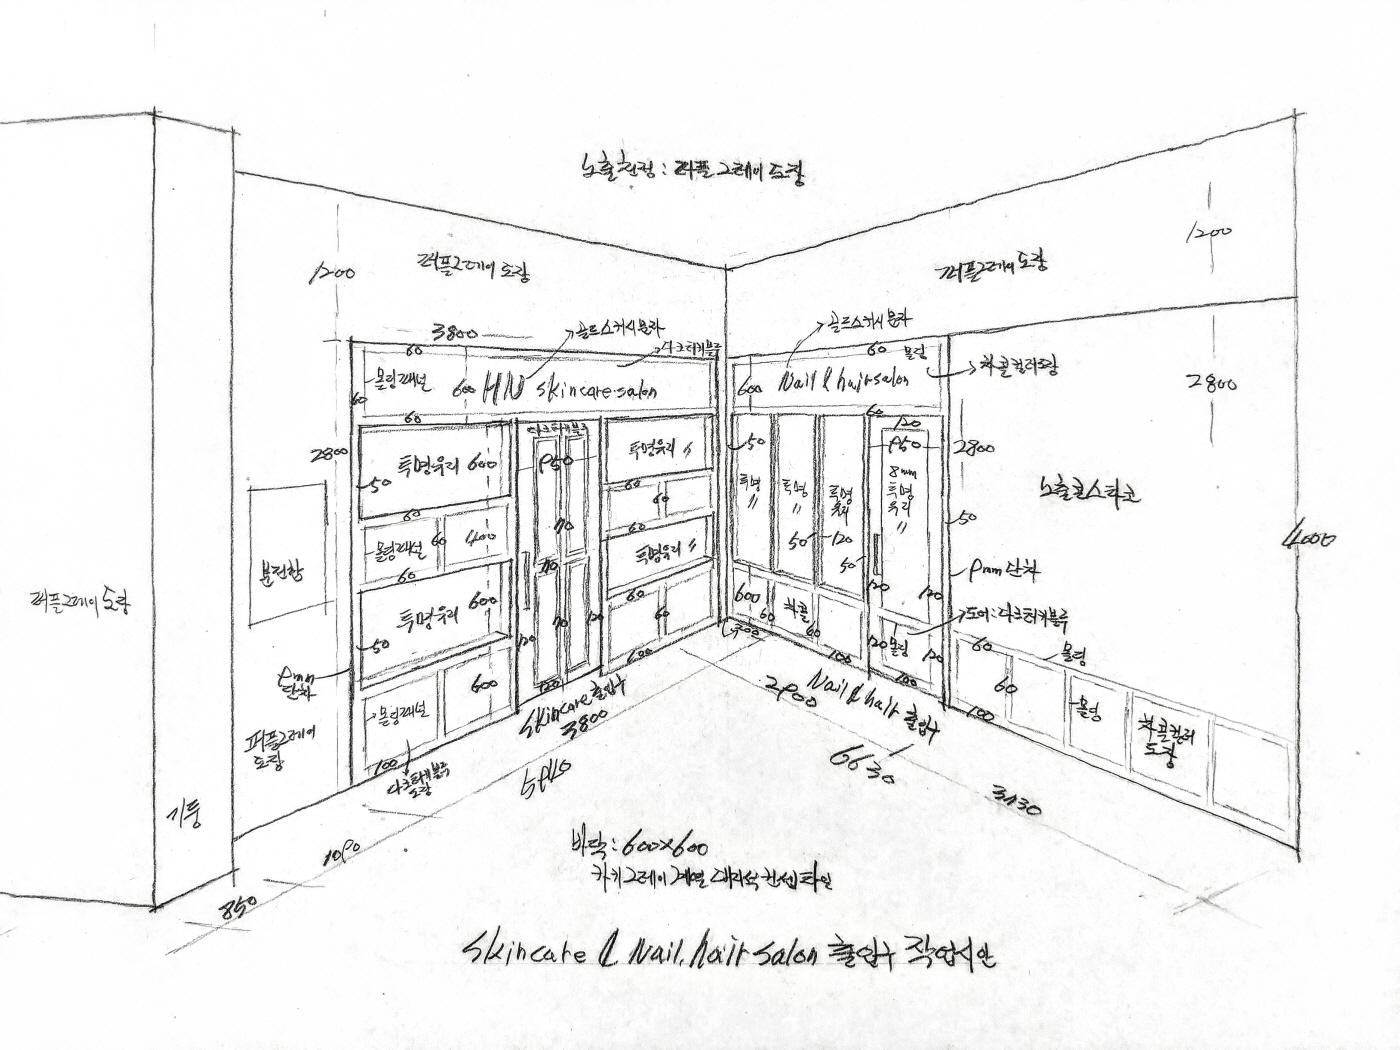 노출천정 : 퍼플그레이 도장
1200
퍼플그레이 도장
퍼플그레이 도장
1200
3800
골드스카시 문자
다크터키블루
60
몰딩패널
600
HN skincare salon
60
60
골드스카시 문자
60
몰딩
차콜컬러도장
600
Nail & hair salon
2800
2800
투명유리 600
50
다크터키블루
950
투명유리 〃
60
60
몰딩패널
60
400
60
70
60
60
투명유리 〃
투명유리
600
50
70
70
120
120
60
60
600
몰딩패널
600
100
120
50
투명
〃
투명
〃
투명
유리
50
120
50
60
120
950
8mm
투명
유리
〃
2800
50
120
120
노출콘스타코
4000
9mm 단차
도어:다크터키블루
600
60
차콜
60
300
100
120
몰딩
120
200
60
몰딩
60
100
몰딩
차콜컬러
도장
분전함
퍼플그레이 도장
9mm
단차
퍼플그레이
도장
기둥
다크터키블루
도장
Skincare 출입구
3800
Nail & hair 출입구
2900
6630
3730
1090
850
바닥 : 600x600
카키그레이 계열 대리석 컨셉타일
Skincare & Nail, hair salon 출입구 작업시안